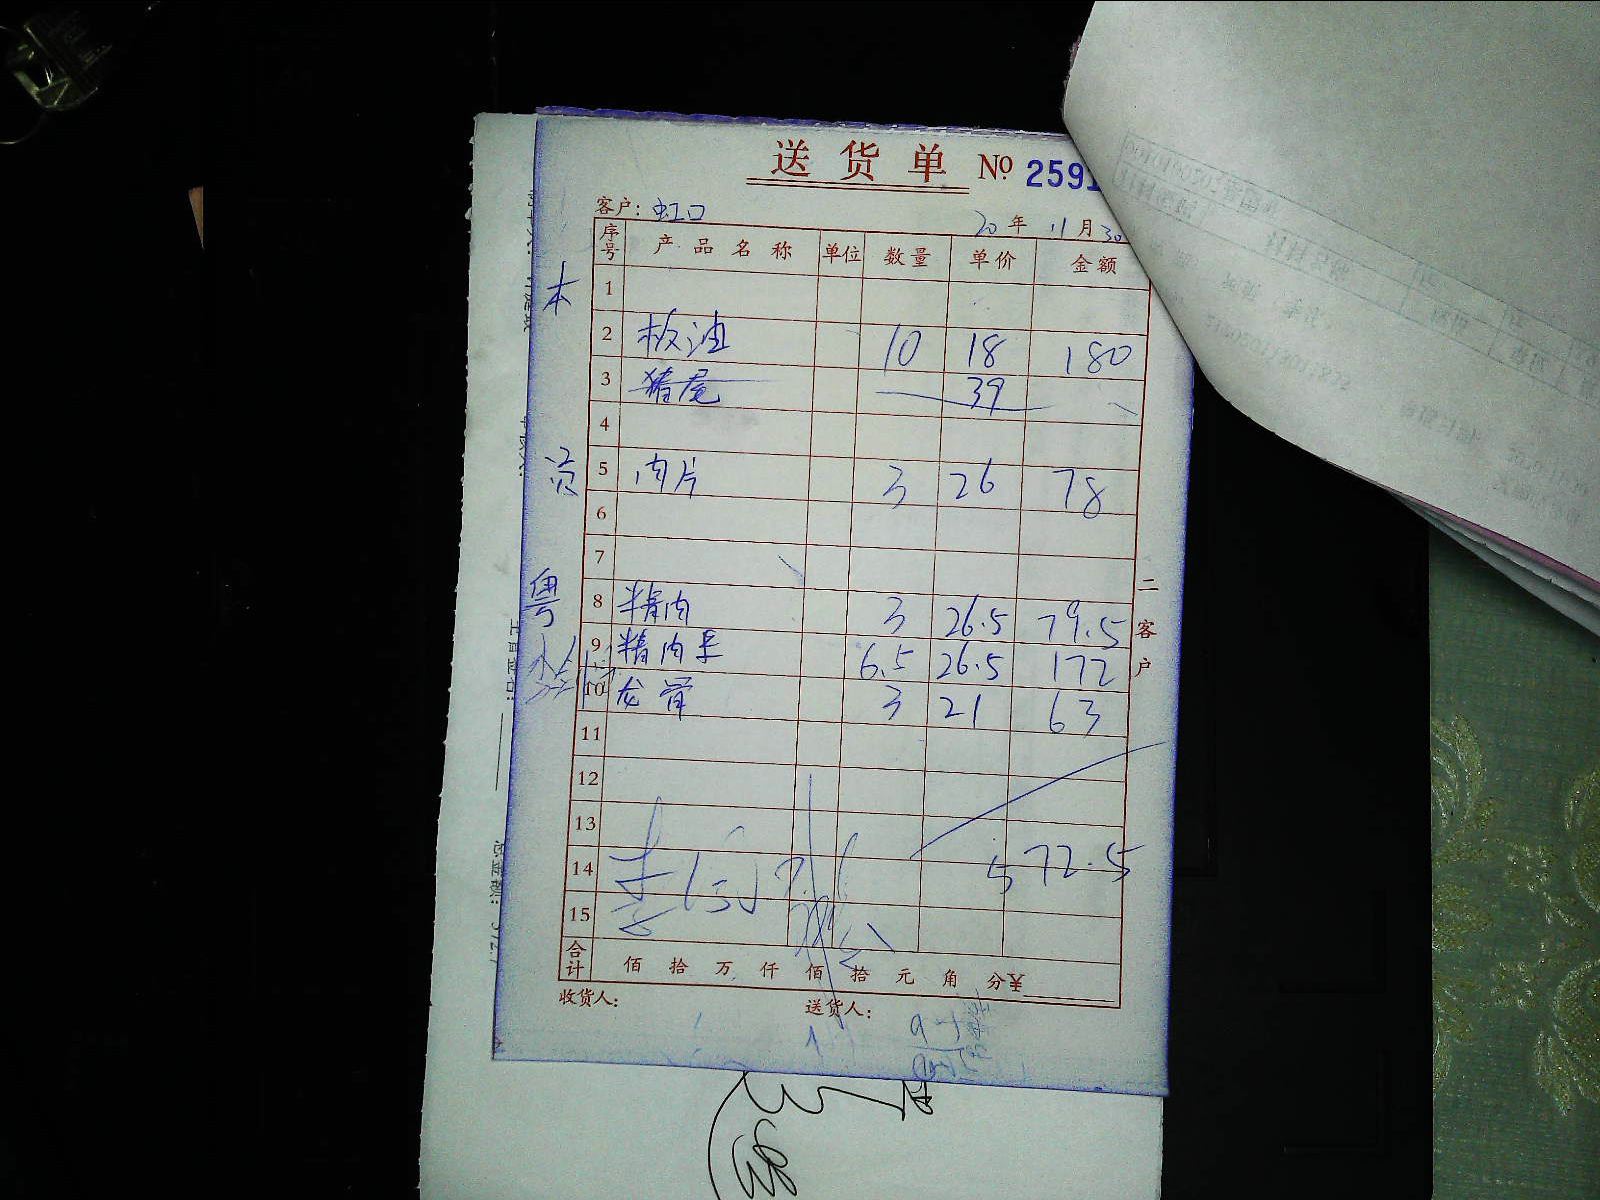 送货单 № 2591
客户: 虹口 20年 11月 30
序号 产品名称 单位 数量 单价 金额
1
本
2 板油 10 18 180
3 猪尾 39
4
5 肉片 3 26 78
6
7
粤
8 精肉 3 26.5 79.5
9 精肉 6.5 26.5 172
10 龙骨 3 21 63
二客户
11
12
13
572.5
14
15
合计 佰 拾 万 仟 佰 拾 元 角 分 ¥
收货人: 送货人: